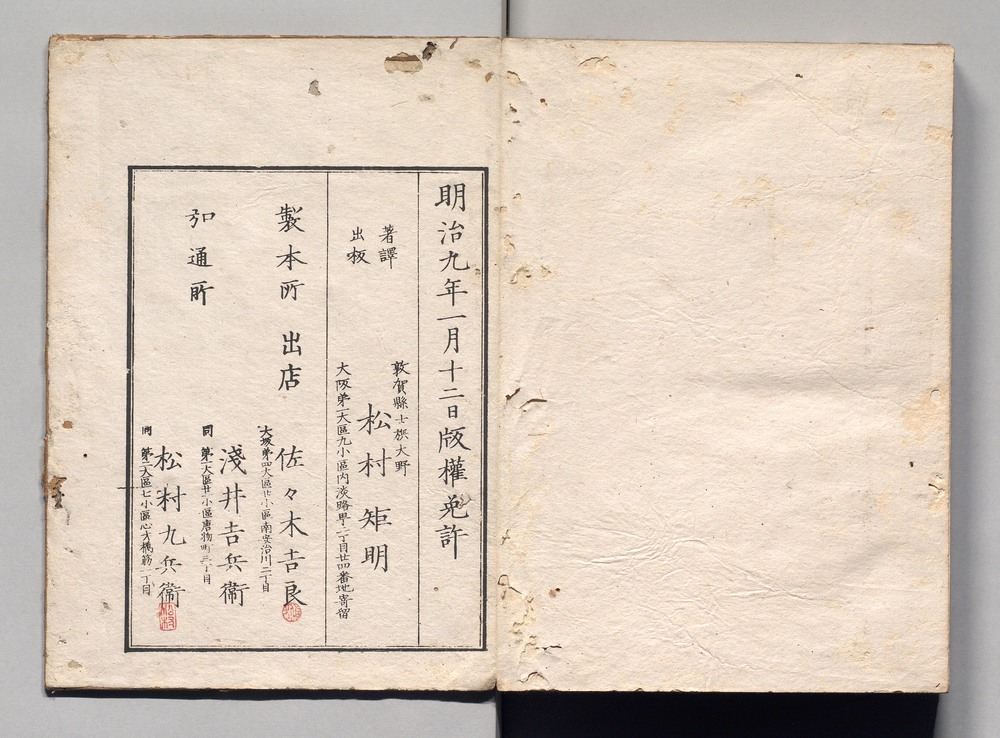 明治九年一月十二日版權免許
著譯
出板
敦賀縣士族大野
松村矩明
大阪第一大區九小區内淡路町二丁目廿四番地寄留
製本所 出店
佐々木吉良
大坂第四大區廿小區南安治川二丁目
弘通所
淺井吉兵衞
同 第一大區廿小區唐物町三丁目
松村九兵衞
同 第二大區七小區心才橋筋一丁目